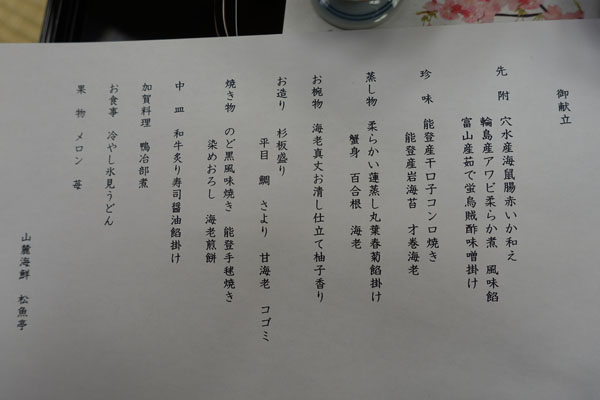 御献立
先附 穴水産海鼠腸赤いか和え
輪島産アワビ柔らか煮 風味餡
富山産茹で蛍烏賊酢味噌掛け
珍味 能登産干口子コンロ焼き
能登産岩海苔 才巻海老
蒸し物 柔らかい蓮蒸し丸葉春菊餡掛け
蟹身 百合根 海老
お椀物 海老真丈お清し仕立て柚子香り
お造り 杉板盛り
平目 鯛 さより 甘海老 コゴミ
焼き物 のど黒風味焼き 能登手毬焼き
染めおろし 海老煎餅
中皿 和牛炙り寿司醤油餡掛け
加賀料理 鴨冶部煮
お食事 冷やし氷見うどん
果物 メロン 苺
山麓海鮮 松魚亭